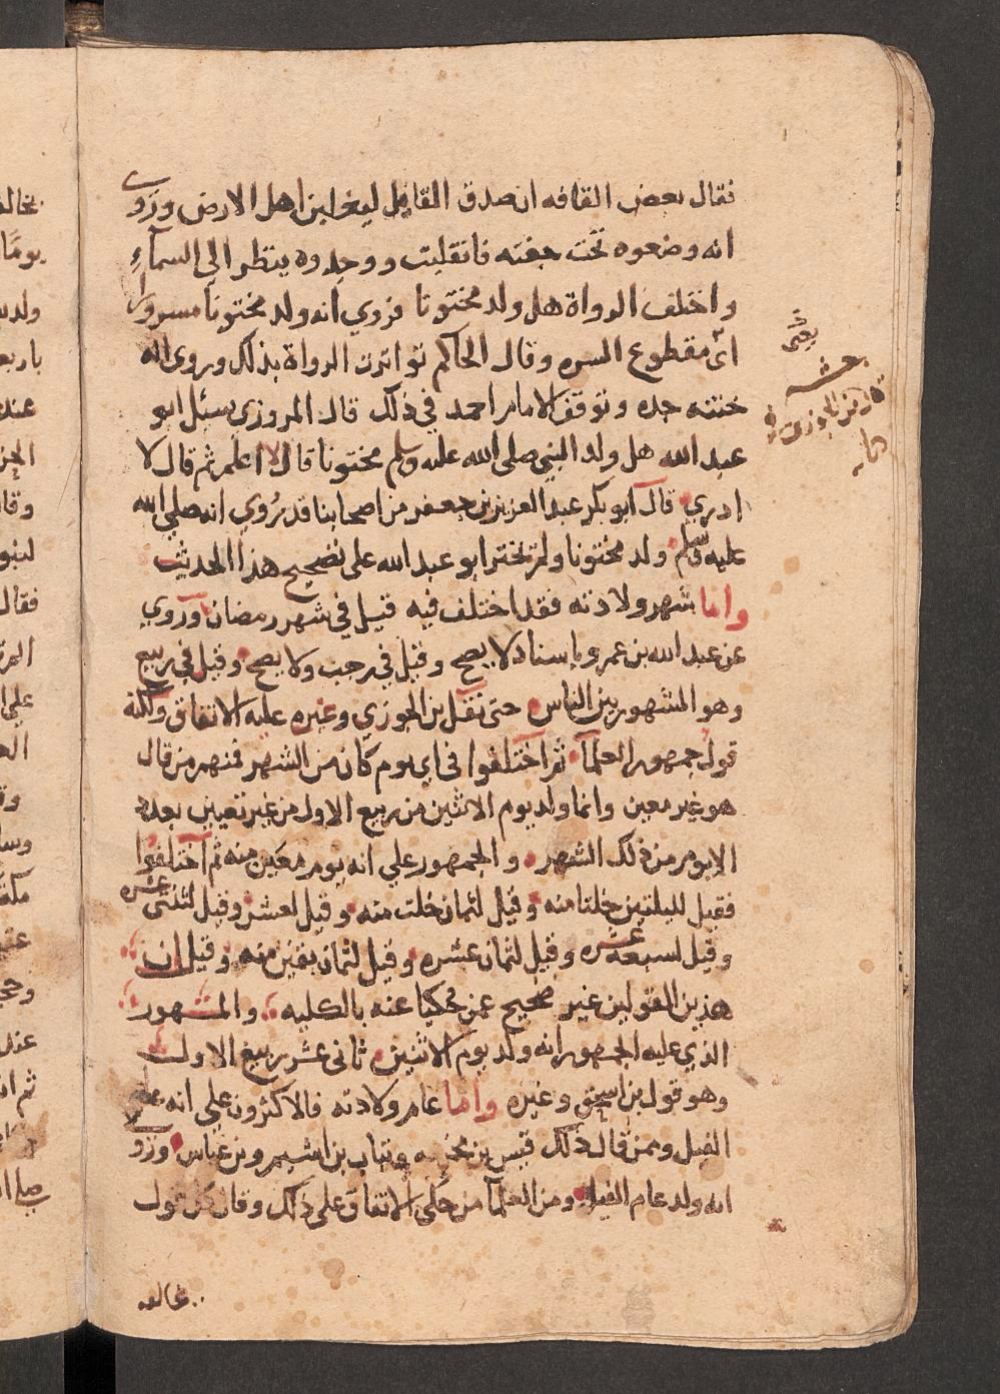 فقال بعض القافه ان صدق القايل ليغلبن اهل الارض وروى
انه وضعوه تحت جفنه فانقلبت ووجدوه ينظر الى السمآء
واختلف الرواة هل ولد مختونا فروي انه ولد مختونا مسرورا
اى مقطوع السره وقال الحاكم تواترت الرواة بذلك وروى انه
ختنه جده وتوقف الامام احمد في ذلك قال المروزى سئل ابو
عبد الله هل ولد النبي صلى الله عليه وسلم مختونا قال الله اعلم ثم قال لا
ادري قال ابو بكر عبد العزيز بن جعفر من اصحابنا قد روي انه صلى الله
عليه وسلم ولد مختونا ولم يجتر ابو عبد الله على تصحيح هذا الحديث
واما شهر ولادته فقد اختلف فيه قيل في شهر رمضان وروي
عن عبد الله بن عمرو باسناد لا يصح وقيل في رجب ولا يصح وقيل في ربيع
وهو المشهور بين الناس حتى نقل بن الجوزي وغيره عليه الاتفاق ولكنه
قول جمهور العلمآ ثم اختلفوا فى اي يوم كان من الشهر فمنهم من قال
هو غير معين وانما ولد يوم الاثنين من ربيع الاول من غير تعيين بعدد
الايوم من ذلك الشهر والجمهور علي انه يوم معين منه ثم اختلفوا
فقيل لليلتين خلتا منه وقيل لثمان خلت منه وقيل لعشر وقيل لثنتى عشره
وقيل لسبعة عشره وقيل لثمان عشره وقيل لثمان بقين منه وقيل ان
هذين القولين غير صحيح عمن حكيا عنه بالكليه والمشهور
الذي عليه الجمهور انه ولد يوم الاثنين ثانى عشر ربيع الاول
وهو قول بن اسحق وغيره واما عام ولادته فالاكثرون علي انه عام
الفيل وممن قال ذلك قيس بن مخرمه وقباث بن اشيم وبن عباس وروى
انه ولد عام الفيل ومن العلمآ من حكى الاتفاق على ذلك وقال كل قول
يخالفه